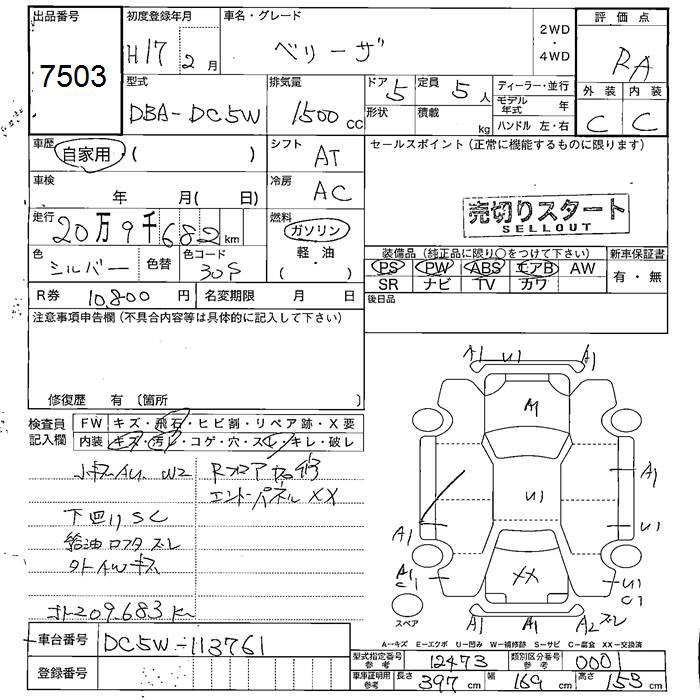 出品番号
7503
初度登録年月
H17 2 月
車名・グレード
ベリーサ
2WD
・
4WD
評価点
RA
外装 内装
C C
型式
DBA-DC5W
排気量
1500 cc
ドア 5
形状
定員 5 人
積載 kg
ディーラー・並行
モデル年式 年
ハンドル 左・右
車歴
自家用・( )
シフト
AT
セールスポイント(正常に機能するものに限ります)
車検
年 月( 日)
冷房
AC
売切りスタート
SELLOUT
走行
20万9千682 km
燃料
ガソリン
・
軽・油
( )
色
シルバー
色替
色コード
30S
装備品(純正品に限り○をつけて下さい)
新車保証書
PS PW ABS エアB AW
SR ナビ TV カワ
有・無
R券 10,800 円
名変期限 月 日
後日品
注意事項申告欄(不具合内容等は具体的に記入して下さい)
修復歴 有 〔箇所 〕
検査員
記入欄
FW キズ・飛石・ヒビ割・リペア跡・X要
内装 キズ・汚レ・コゲ・穴・スレ・キレ・破レ
小キズAU. W2
Rフロア
エンドパネル XX
下回り SC
給油ロフタ ズレ
209.683
A1 U1 A1
A1
U1
A1
U1
A1
A1
C1
XX
U1
C1
A1 A1 A2 ズレ
スペア
A--キズ E--エクボ U--凹み W--補修跡 S--サビ C--腐食 XX--交換済
車台番号
DC5W-113761
登録番号
型式指定番号
参考
12473
類別区分番号
参考
0001
車庫証明用
参考
長さ 397 cm
幅 169 cm
高さ 153 cm